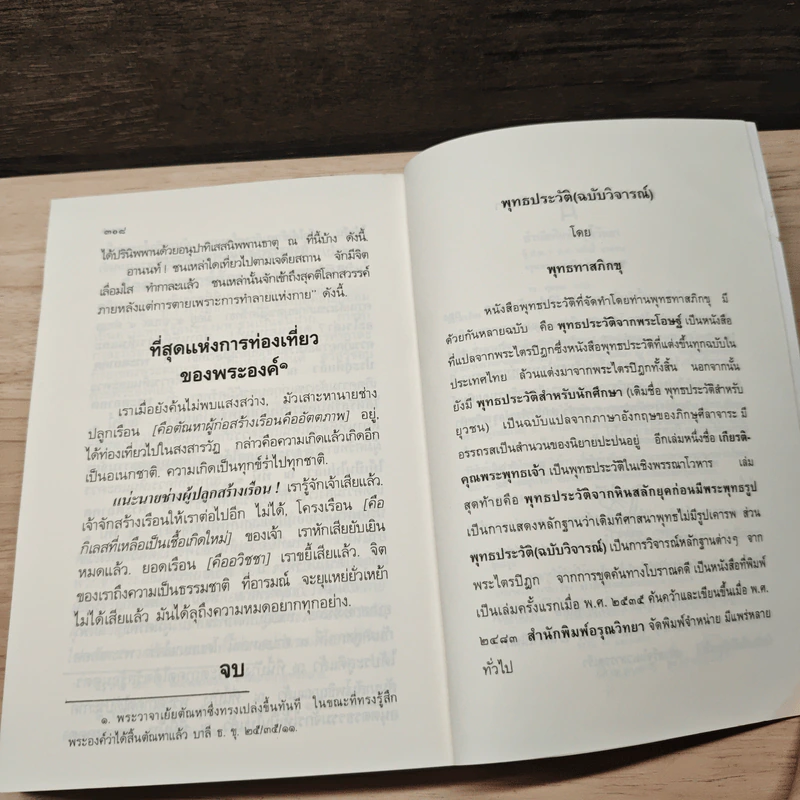 ๓๑๔
ได้ปรินิพพานด้วยอนุปาทิเสสนิพพานธาตุ ณ ที่นี้บ้าง ดังนี้.
อานนท์ ! ชนเหล่าใดเที่ยวไปตามเจดียสถาน จักมีจิต
เลื่อมใส ทำกาละแล้ว ชนเหล่านั้นจักเข้าถึงสุคติโลกสวรรค์
ภายหลังแต่การตายเพราะการทำลายแห่งกาย” ดังนี้.
ที่สุดแห่งการท่องเที่ยว
ของพระองค์๑
เราเมื่อยังค้นไม่พบแสงสว่าง, มัวเสาะหานายช่าง
ปลูกเรือน [คือตัณหาผู้ก่อสร้างเรือนคืออัตตภาพ] อยู่,
ได้ท่องเที่ยวไปในสงสารวัฏ กล่าวคือความเกิดแล้วเกิดอีก
เป็นอเนกชาติ. ความเกิดเป็นทุกข์ร่ำไปทุกชาติ.
แน่ะนายช่างผู้ปลูกสร้างเรือน ! เรารู้จักเจ้าเสียแล้ว.
เจ้าจักสร้างเรือนให้เราต่อไปอีก ไม่ได้, โครงเรือน [คือ
กิเลสที่เหลือเป็นเชื้อเกิดใหม่] ของเจ้า เราหักเสียยับเยิน
หมดแล้ว. ยอดเรือน [คืออวิชชา] เราขยี้เสียแล้ว. จิต
ของเราถึงความเป็นธรรมชาติ ที่อารมณ์ จะยุแหย่ยั่วเหย้า
ไม่ได้เสียแล้ว มันได้ลุถึงความหมดอยากทุกอย่าง.
จบ
๑. พระวาจาเย้ยตัณหาซึ่งทรงเปล่งขึ้นทันที ในขณะที่ทรงรู้สึก
พระองค์ว่าได้สิ้นตัณหาแล้ว บาลี ธ. ขุ. ๒๕/๓๕/๑๑.
พุทธประวัติ(ฉบับวิจารณ์)
โดย
พุทธทาสภิกขุ
หนังสือพุทธประวัติที่จัดทำโดยท่านพุทธทาสภิกขุ มี
ด้วยกันหลายฉบับ คือ พุทธประวัติจากพระโอษฐ์ เป็นหนังสือ
ที่แปลจากพระไตรปิฎกซึ่งหนังสือพุทธประวัติที่แต่งขึ้นทุกฉบับใน
ประเทศไทย ล้วนแต่งมาจากพระไตรปิฎกทั้งสิ้น นอกจากนั้น
ยังมี พุทธประวัติสำหรับนักศึกษา (เดิมชื่อ พุทธประวัติสำหรับ
ยุวชน) เป็นฉบับแปลจากภาษาอังกฤษของภิกษุสีลาจาระ มี
อรรถรสเป็นสำนวนของนิยายปะปนอยู่ อีกเล่มหนึ่งชื่อ เกียรติ-
คุณพระพุทธเจ้า เป็นพุทธประวัติในเชิงพรรณาโวหาร เล่ม
สุดท้ายคือ พุทธประวัติจากหินสลักยุคก่อนมีพระพุทธรูป
เป็นการแสดงหลักฐานว่าเดิมทีศาสนาพุทธไม่มีรูปเคารพ ส่วน
พุทธประวัติ(ฉบับวิจารณ์) เป็นการวิจารณ์หลักฐานต่างๆ จาก
พระไตรปิฎก จากการขุดค้นทางโบราณคดี เป็นหนังสือที่พิมพ์
เป็นเล่มครั้งแรกเมื่อ พ.ศ. ๒๕๓๕ ค้นคว้าและเขียนขึ้นเมื่อ พ.ศ.
๒๔๘๓ สำนักพิมพ์อรุณวิทยา จัดพิมพ์จำหน่าย มีแพร่หลาย
ทั่วไป